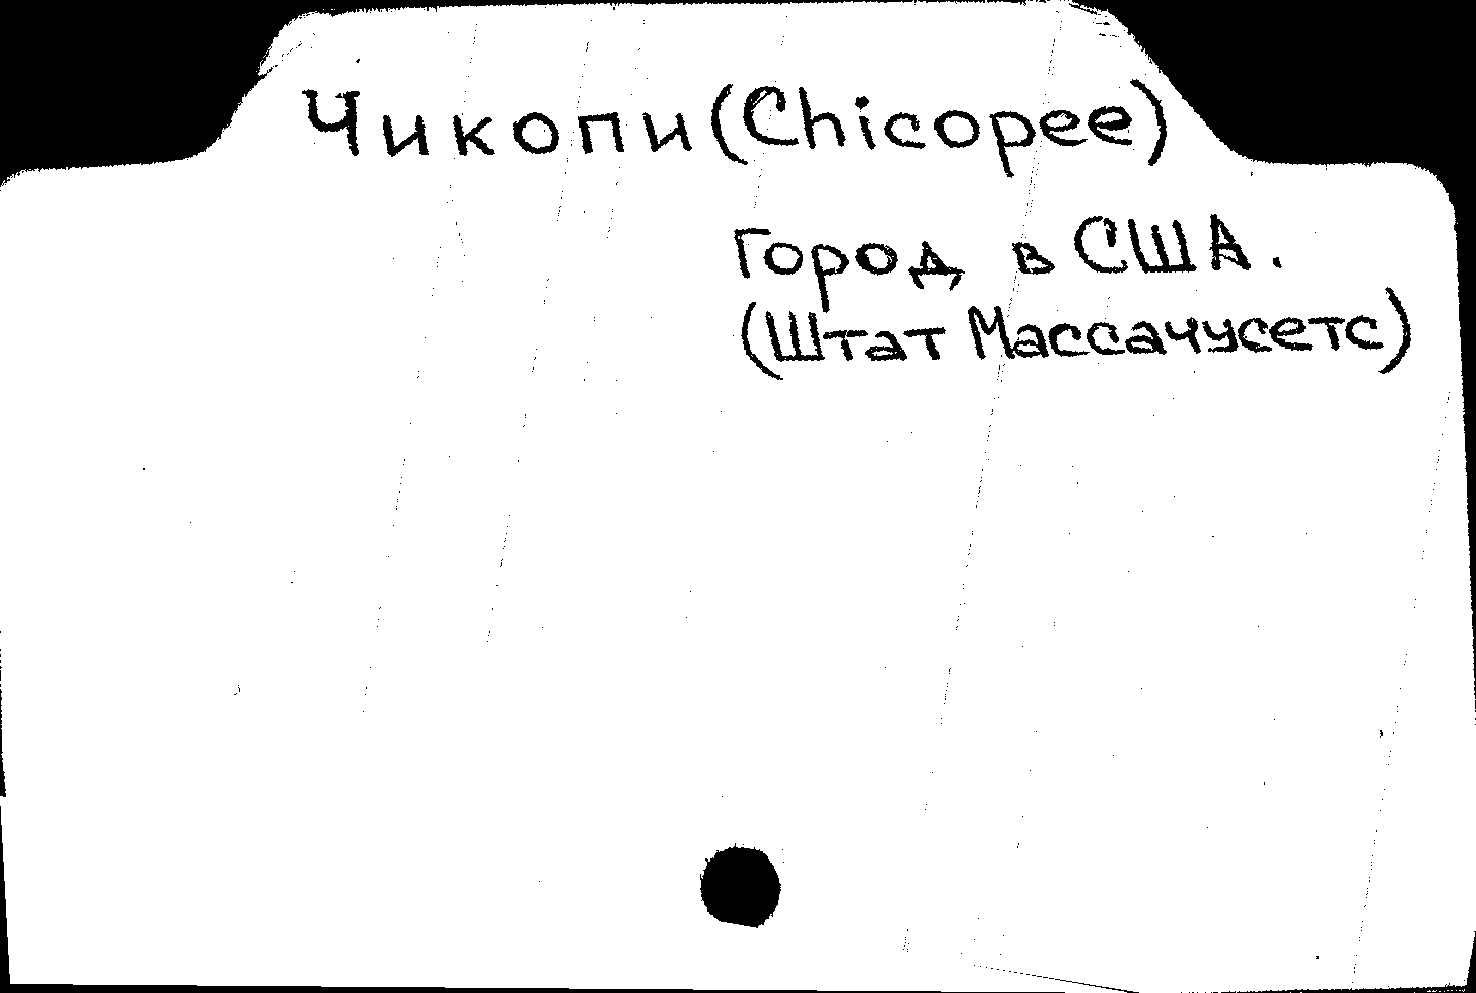 Чикопи (Chicopee)
Город в США.
(Штат Массачусетс)